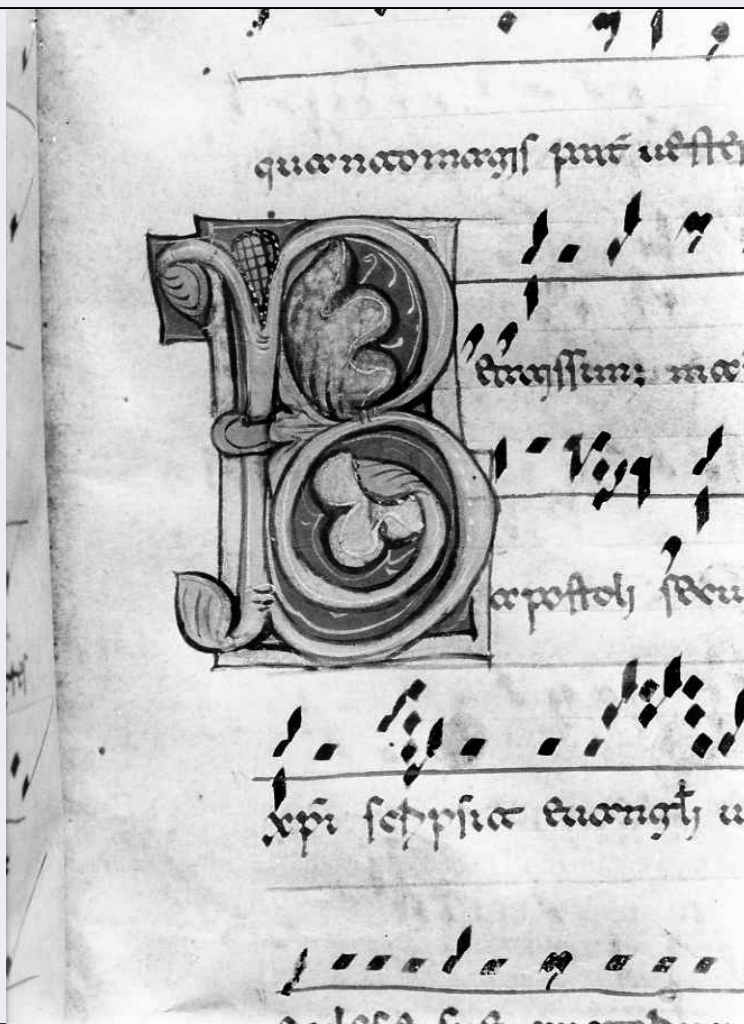 quantomagis pat̄ ueste
Beatissimi ma
apostoli secu
xp̄i scripsit euangl̄i u